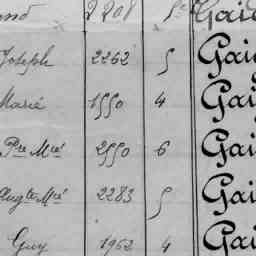 2201 Gaid
Joseph 2262 5 Gai
Marie 1550 4 Gai
Pre Mré 2550 6 Gai
Augte Mré 2283 5 Gai
Guy 1962 4 Gai